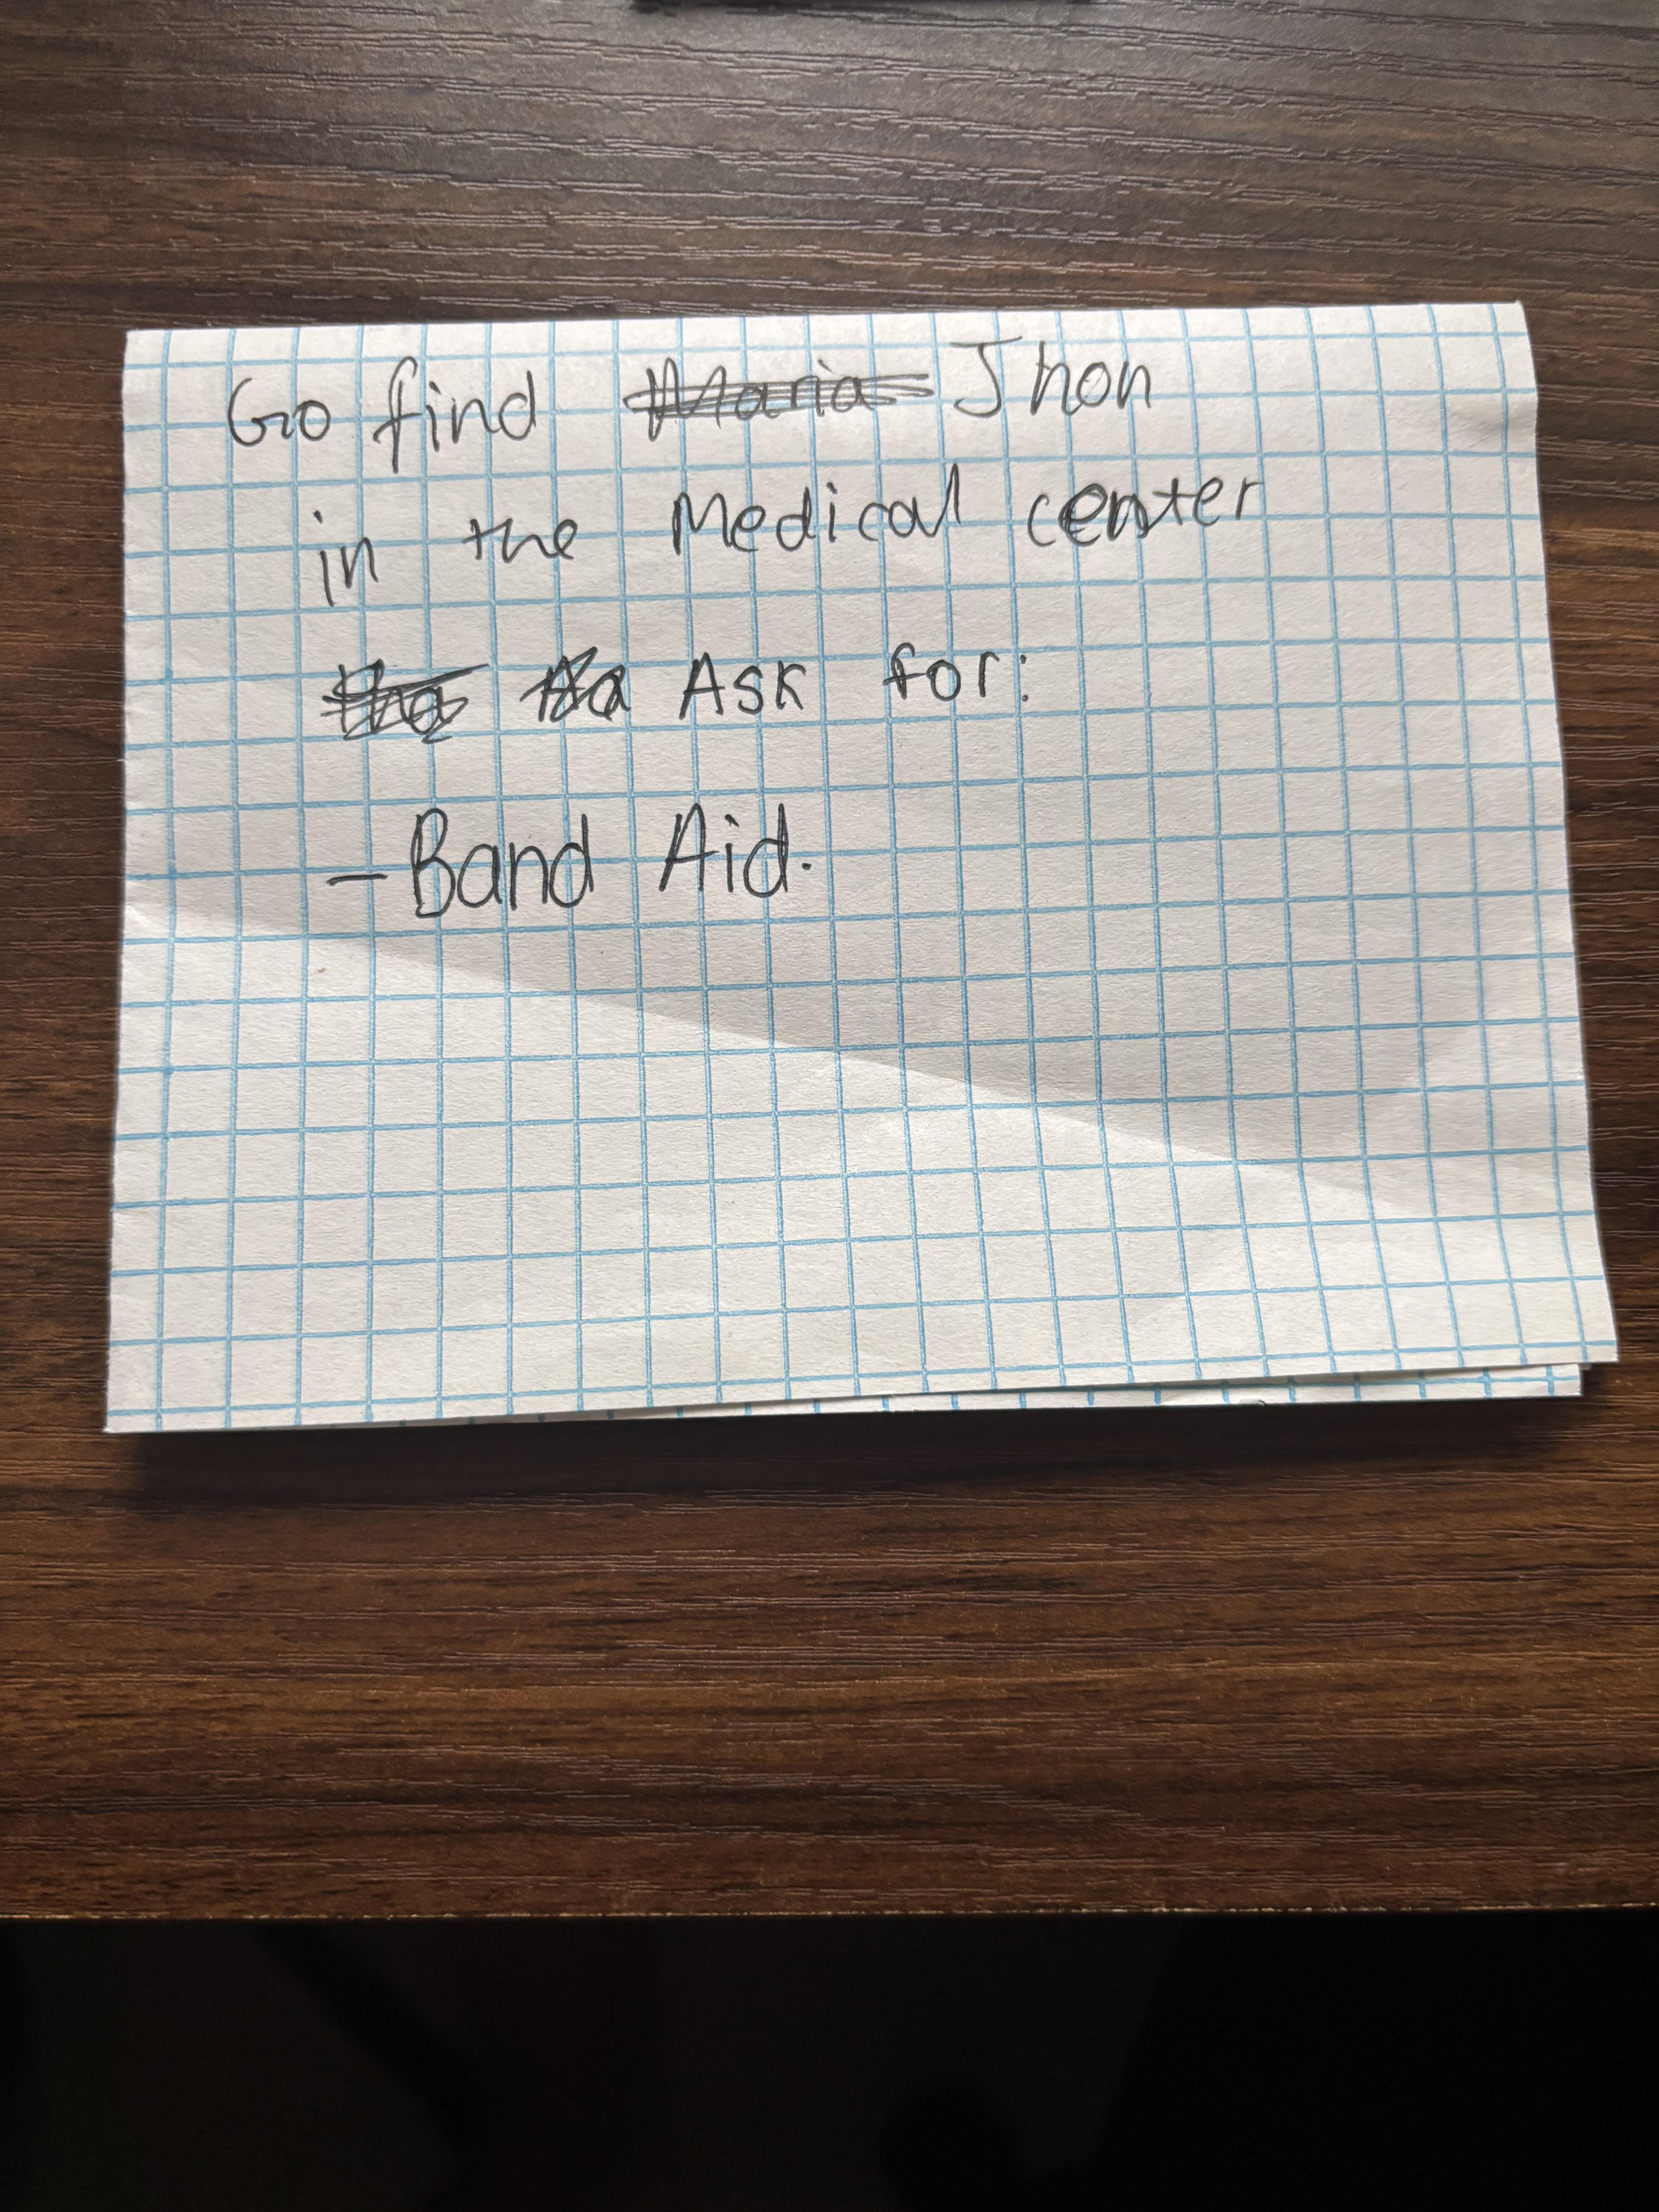 Go find Maria Jhon
in the Medical center
Ask for:
- Band Aid.